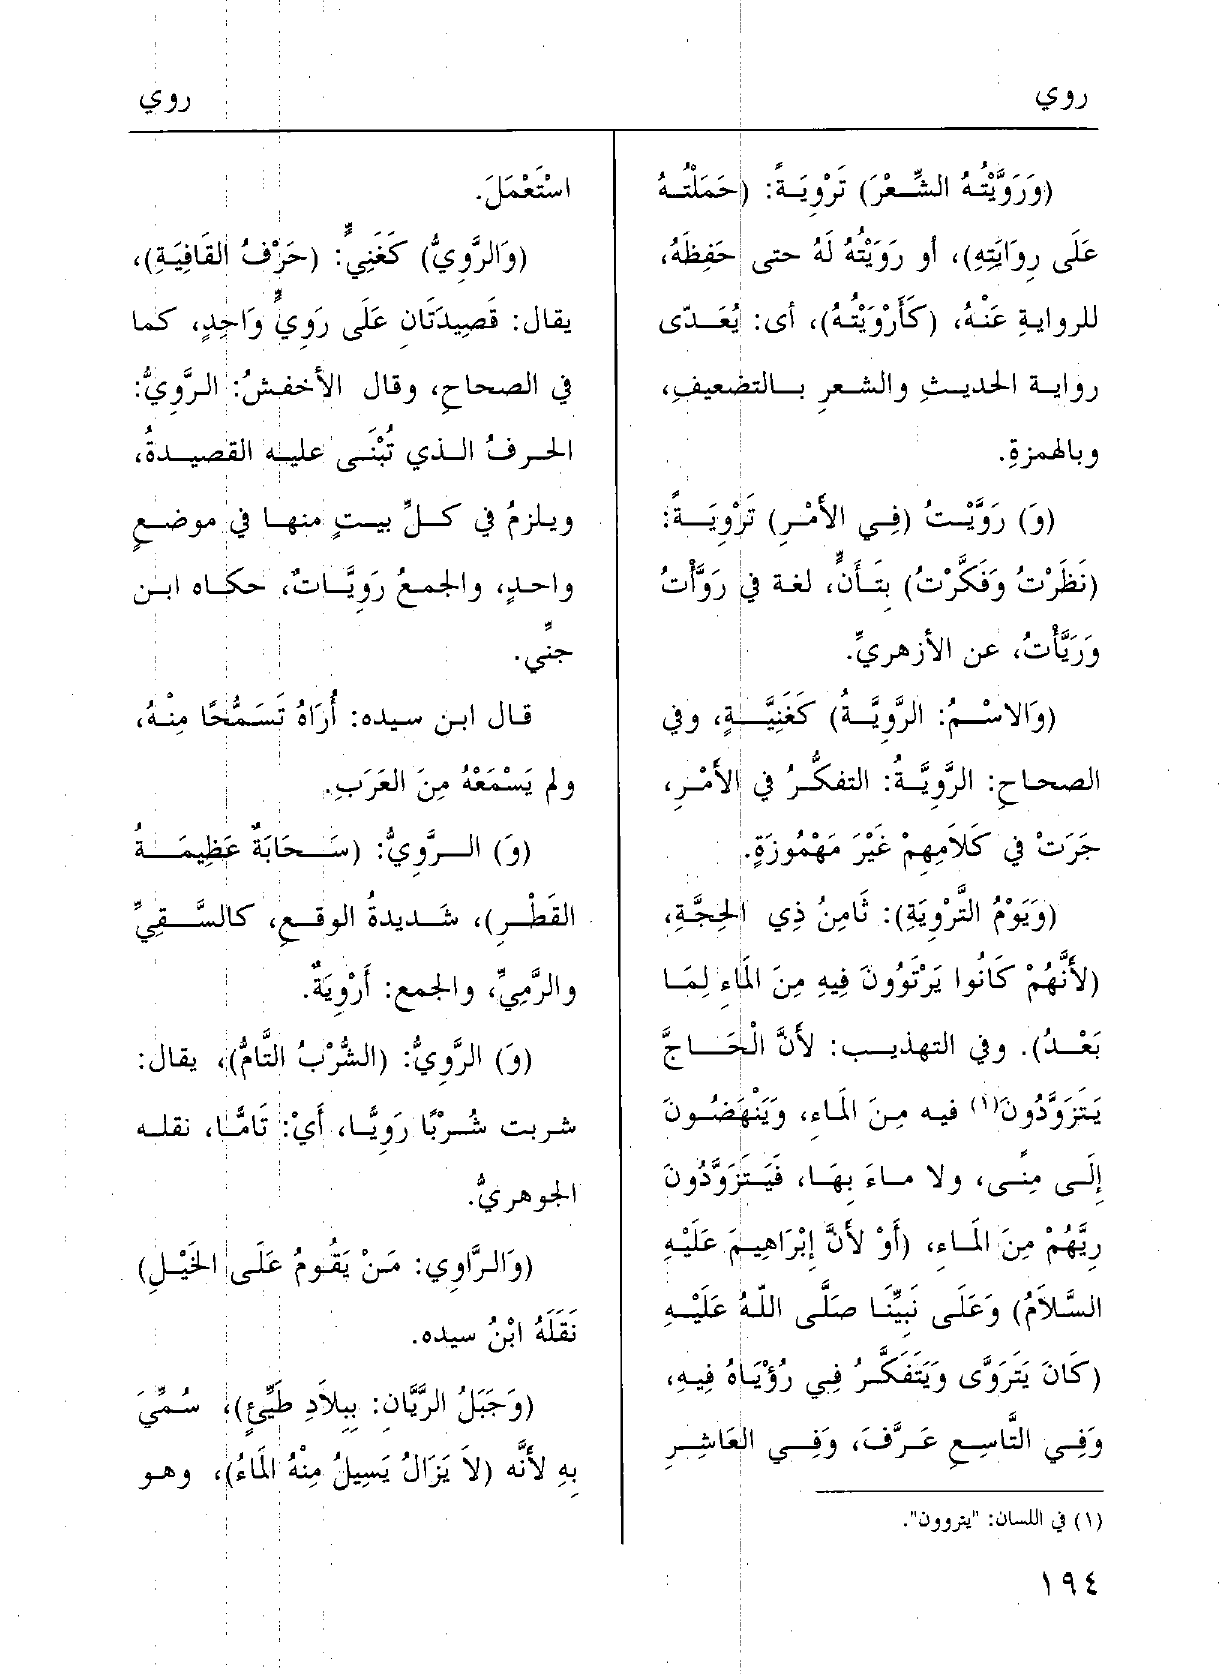 روي
روي
(وَرَوَّيْتُهُ الشِّعْرَ) تَرْوِيَةً: (حَمَلْتُهُ
عَلَى رِوَايَتِهِ)، أو رَوَيْتُهُ لَهُ حتى حَفِظَهُ،
للروايةِ عَنْهُ، (كَأَرْوَيْتُهُ)، أى: يُعَدّى
رواية الحديثِ والشعرِ بالتضعيفِ،
وبالهمزةِ.
(وَ) رَوَّيْتُ (فِي الأَمْرِ) تَرْوِيَةً:
(نَظَرْتُ وَفَكَّرْتُ) بِتَأَنٍّ، لغة في رَوَّأْتُ
وَرَيَّأْتُ، عن الأزهريِّ.
(وَالاسْمُ: الرَّوِيَّةُ) كَغَنِيَّةٍ، وفي
الصحاحِ: الرَّوِيَّةُ: التفكُّرُ في الأَمْرِ،
جَرَتْ في كَلاَمِهِمْ غَيْرَ مَهْمُوزَةٍ.
(وَيَوْمُ التَّرْوِيَةِ): ثَامِنُ ذِي الحِجَّةِ،
(لأَنَّهُمْ كَانُوا يَرْتَوُونَ فِيهِ مِنَ المَاءِ لِمَا
بَعْدُ). وفي التهذيبِ: لأَنَّ الْحَاجَّ
يَتَزَوَّدُونَ(١) فيه مِنَ المَاءِ، وَيَنْهَضُونَ
إِلَى مِنًى، ولا ماءَ بِهَا، فَيَتَزَوَّدُونَ
رِيَّهُمْ مِنَ المَاءِ، (أَوْ لأَنَّ إِبْرَاهِيمَ عَلَيْهِ
السَّلاَمُ) وَعَلَى نَبِيِّنَا صَلَّى اللّهُ عَلَيْهِ
(كَانَ يَتَرَوَّى وَيَتَفَكَّرُ فِي رُؤْيَاهُ فِيهِ،
وَفِي التَّاسِعِ عَرَّفَ، وَفِي العَاشِرِ
(١) في اللسان: "يتروون".
١٩٤
اسْتَعْمَلَ.
(وَالرَّوِيُّ) كَغَنِيٍّ: (حَرْفُ القَافِيَةِ)،
يقال: قَصِيدَتَانِ عَلَى رَوِيٍّ وَاحِدٍ، كما
في الصحاحِ، وقال الأخفشُ: الرَّوِيُّ:
الحرفُ الذي تُبْنَى عليه القصيدةُ،
ويلزمُ في كلِّ بيتٍ منها في موضعٍ
واحدٍ، والجمعُ رَوِيَّاتٌ، حكاه ابن
جنِّي.
قال ابن سيده: أُرَاهُ تَسَمُّحًا مِنْهُ،
ولم يَسْمَعْهُ مِنَ العَرَبِ.
(وَ) الرَّوِيُّ: (سَحَابَةٌ عَظِيمَةُ
القَطْرِ)، شديدةُ الوقعِ، كالسَّقِيِّ
والرَّمِيِّ، والجمع: أَرْوِيَةٌ.
(وَ) الرَّوِيُّ: (الشُّرْبُ التَّامُّ)، يقال:
شربت شُرْبًا رَوِيًّا، أَيْ: تَامًّا، نقله
الجوهريُّ.
(وَالرَّاوِي: مَنْ يَقُومُ عَلَى الخَيْلِ)
نَقَلَهُ ابْنُ سيده.
(وَجَبَلُ الرَّيَّانِ: بِبِلاَدِ طَيِّئٍ)، سُمِّيَ
بِهِ لأَنَّه (لاَ يَزَالُ يَسِيلُ مِنْهُ المَاءُ)، وهو